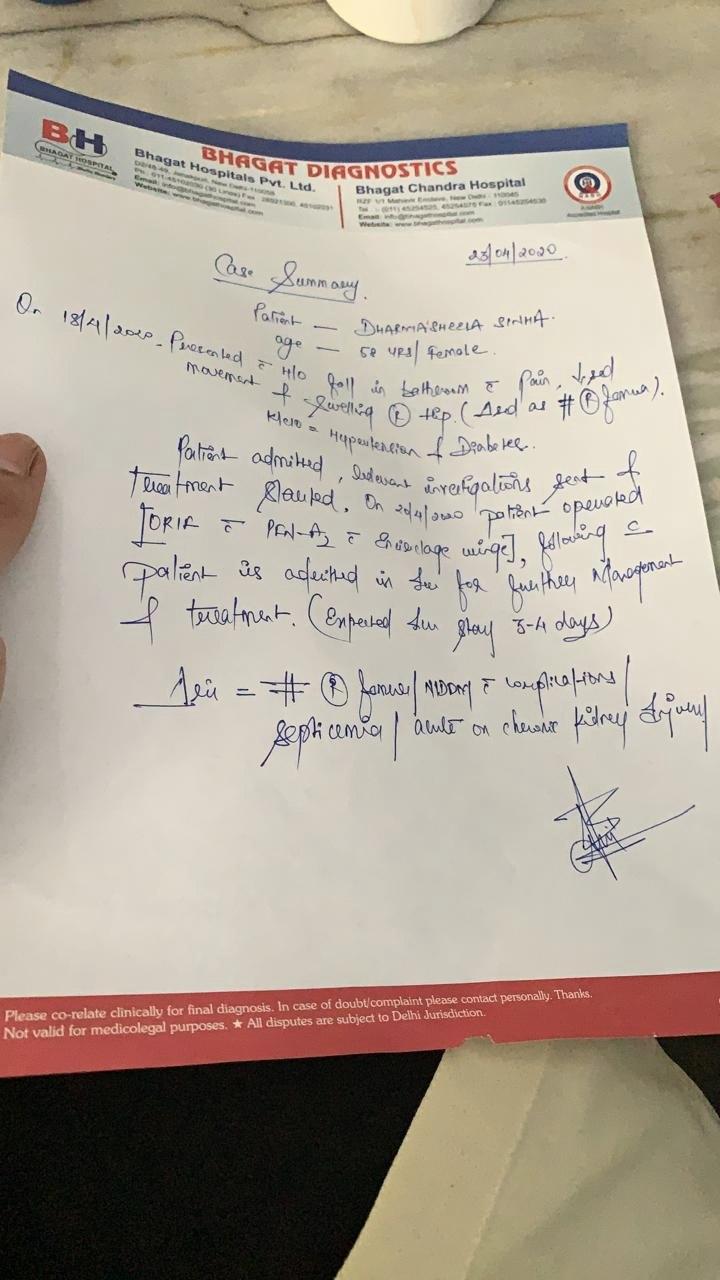 BH
BHAGAT HOSPITAL
BHAGAT DIAGNOSTICS
Bhagat Hospitals Pvt. Ltd.
D2/48-49, Janakpuri, New Delhi-110058
Website: www.bhagathospital.com
Bhagat Chandra Hospital
RZF 1/1 Mahavir Enclave, New Delhi - 110045
Tel : (011) 45254525, 45254575 Fax : 01145254530
Email: info@bhagathospital.com
Website: www.bhagathospital.com
Accredited Hospital
23/04/2020
Case Summary
Patient — DHARMASHEELA SINHA
age — 58 YRS/ Female
On 18/4/2020 - Presented c̄ H/O fall in bathroom c̄ Pain, ↓sed
movement & Swelling Ⓡ Hip. (as # Ⓡ femur).
K/c/o = Hypertension & Diabetes.
Patient admitted, relevant investigations sent &
treatment started. On 20/4/2020 patient operated
[ORIF c̄ PFN-A2 c̄ wirge], following c̄
patient is admitted in for further Management
& treatment. (Expected stay 3-4 days)
= # Ⓡ femur/ NIDDM c̄ complications/
septicemia/ acute on chronic kidney Injury/
Please co-relate clinically for final diagnosis. In case of doubt/complaint please contact personally. Thanks.
Not valid for medicolegal purposes. ★ All disputes are subject to Delhi Jurisdiction.